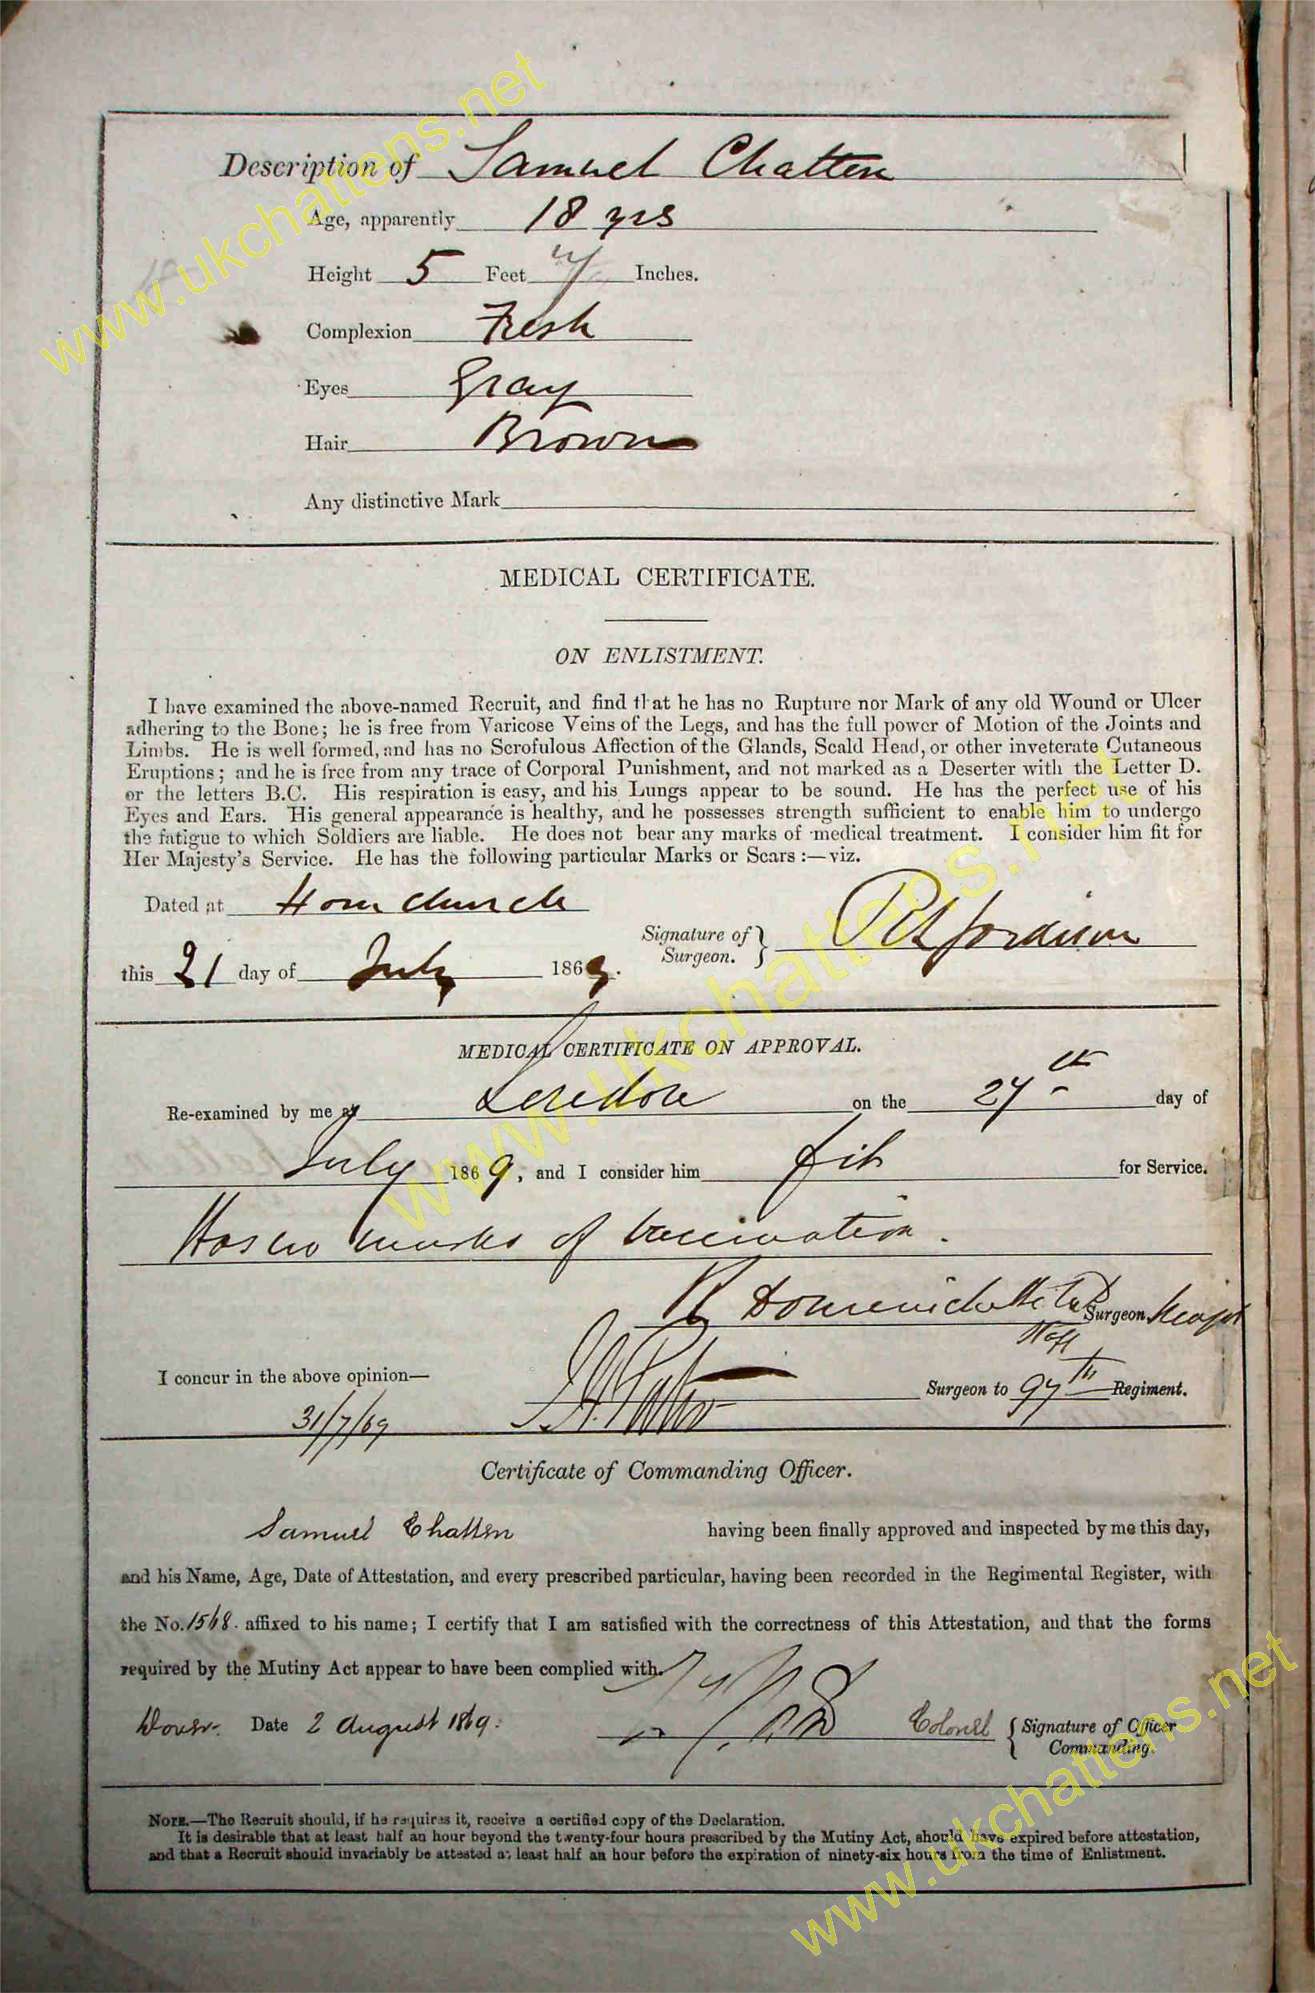 Description of Samuel Chatten
Age, apparently 18 yrs
Height 5 Feet 7 Inches.
Complexion Fresh
Eyes Gray
Hair Brown
Any distinctive Mark
MEDICAL CERTIFICATE.
ON ENLISTMENT.
I have examined the above-named Recruit, and find that he has no Rupture nor Mark of any old Wound or Ulcer
adhering to the Bone; he is free from Varicose Veins of the Legs, and has the full power of Motion of the Joints and
Limbs. He is well formed, and has no Scrofulous Affection of the Glands, Scald Head, or other inveterate Cutaneous
Eruptions; and he is free from any trace of Corporal Punishment, and not marked as a Deserter with the Letter D.
or the letters B.C. His respiration is easy, and his Lungs appear to be sound. He has the perfect use of his
Eyes and Ears. His general appearance is healthy, and he possesses strength sufficient to enable him to undergo
the fatigue to which Soldiers are liable. He does not bear any marks of medical treatment. I consider him fit for
Her Majesty's Service. He has the following particular Marks or Scars :—viz.
Dated at Hornchurch
Signature of Surgeon.
this 21 day of July 1869.
MEDICAL CERTIFICATE ON APPROVAL.
Re-examined by me at London on the 27th day of
July 1869, and I consider him fit for Service.
Has marks of vaccination.
Surgeon Major
Staff
I concur in the above opinion— Surgeon to 97th Regiment.
31/7/69
Certificate of Commanding Officer.
Samuel Chatten having been finally approved and inspected by me this day,
and his Name, Age, Date of Attestation, and every prescribed particular, having been recorded in the Regimental Register, with
the No. 1568 affixed to his name; I certify that I am satisfied with the correctness of this Attestation, and that the forms
required by the Mutiny Act appear to have been complied with.
Dover. Date 2 August 1869. Colonel Signature of Officer
Commanding.
NOTE.—The Recruit should, if he requires it, receive a certified copy of the Declaration.
It is desirable that at least half an hour beyond the twenty-four hours prescribed by the Mutiny Act, should have expired before attestation,
and that a Recruit should invariably be attested at least half an hour before the expiration of ninety-six hours from the time of Enlistment.
www.ukchattens.net
www.ukchattens.net
www.ukchattens.net